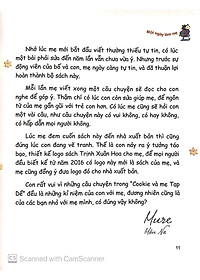 Một ngày làm mẹ
Nhớ lúc mẹ mới bắt đầu viết thường thiếu tự tin, có lúc
một bài phải sửa đến năm lần vẫn chưa vừa ý. Nhưng trước sự
động viên của bố và con, mẹ ngày càng tự tin, và đã thuận lợi
hoàn thành bộ sách này.
Mỗi lần mẹ viết xong một câu chuyện sẽ đọc cho con
nghe để góp ý. Thậm chí có lúc con còn sửa giúp mẹ, để ngôn
từ của mẹ gần gũi với trẻ con hơn. Có lúc mẹ cũng sẽ hỏi con
một vài câu, như câu chuyện này có vui không, có hay không,
có hấp dẫn mọi người không.
Lúc mẹ đem cuốn sách này đến nhà xuất bản thì cũng
đúng lúc con đang vẽ tranh. Thế là con nảy ra ý tưởng táo
bạo, thiết kế logo sách Trịnh Xuân Hoa cho mẹ, để mọi người
đều biết kể từ năm 2016 có logo này mới là sách của mẹ, và
mẹ cũng đồng ý đưa logo đó cho nhà xuất bản.
Con rất vui vì những câu chuyện trong "Cookie và mẹ Tạp
Dề" đều là những kỉ niệm của con với mẹ, đương nhiên cũng là
của các bạn nhỏ với mẹ mình, có đúng vậy không?
11
Scanned with CamScanner